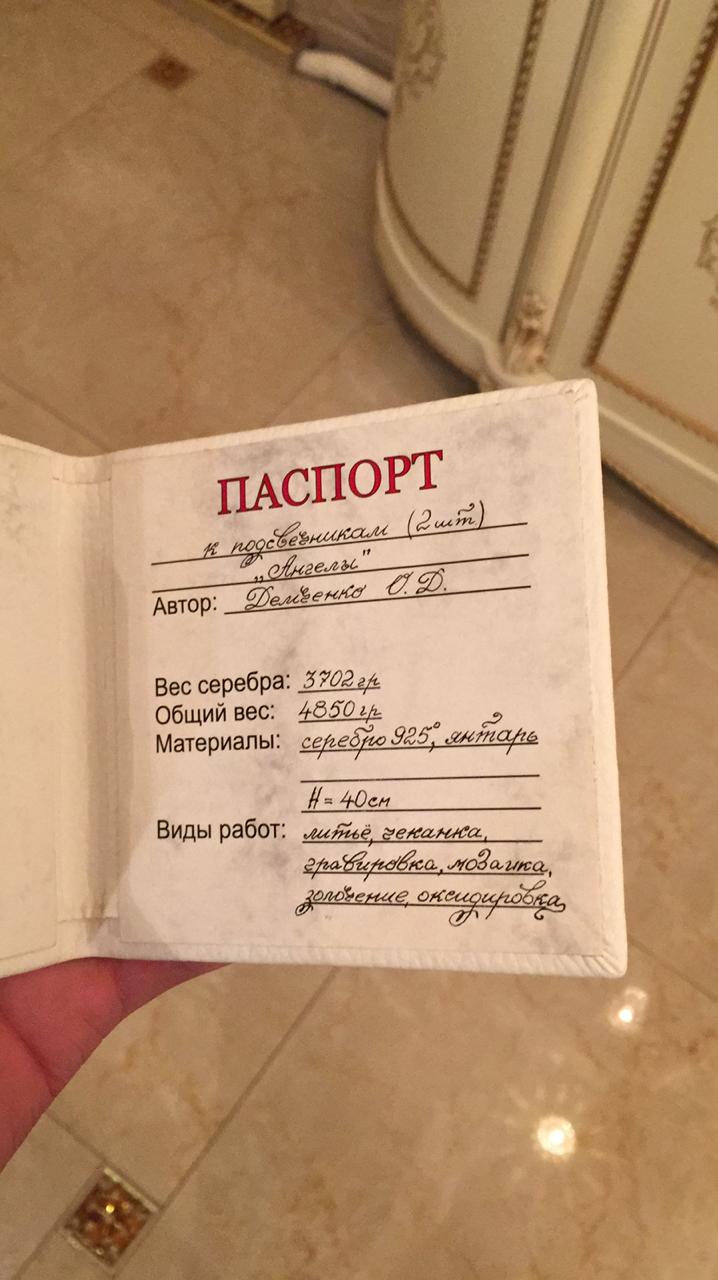 ПАСПОРТ
к подсвечникам (2шт)
„Ангелы"
Автор: Демченко О.Д.
Вес серебра: 3702гр
Общий вес: 4850гр
Материалы: серебро 925°, янтарь
H = 40см
Виды работ: литьё, чеканка,
гравировка, мозаика,
золочение, оксидировка